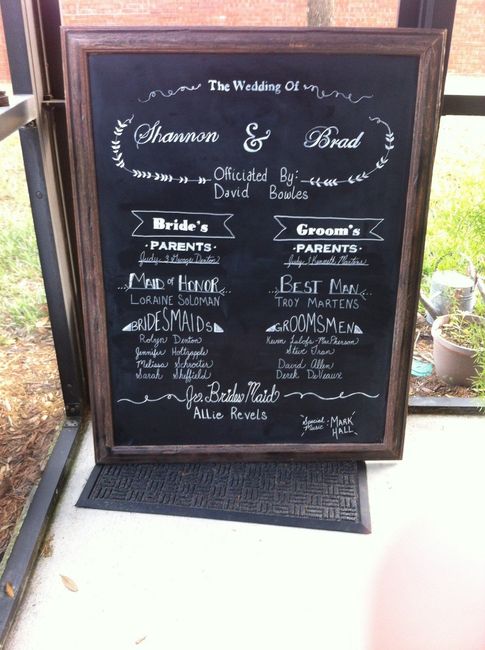 The Wedding Of
Shannon & Brad
Officiated By:
David Bowles
Bride's
PARENTS
Judy & George Denton
Groom's
PARENTS
Judy & Kenneth Martens
MAID of HONOR
LORAINE SOLOMAN
BEST MAN
TROY MARTENS
BRIDESMAIDS
Robyn Denton
Jennifer Holtzapple
Melissa Schroeter
Sarah Sheffield
GROOMSMEN
Kevin Lulofs-MacPherson
Steve Tran
David Allen
Derek DeVeaux
Jr. Brides Maid
Allie Revels
Special Music: MARK
HALL